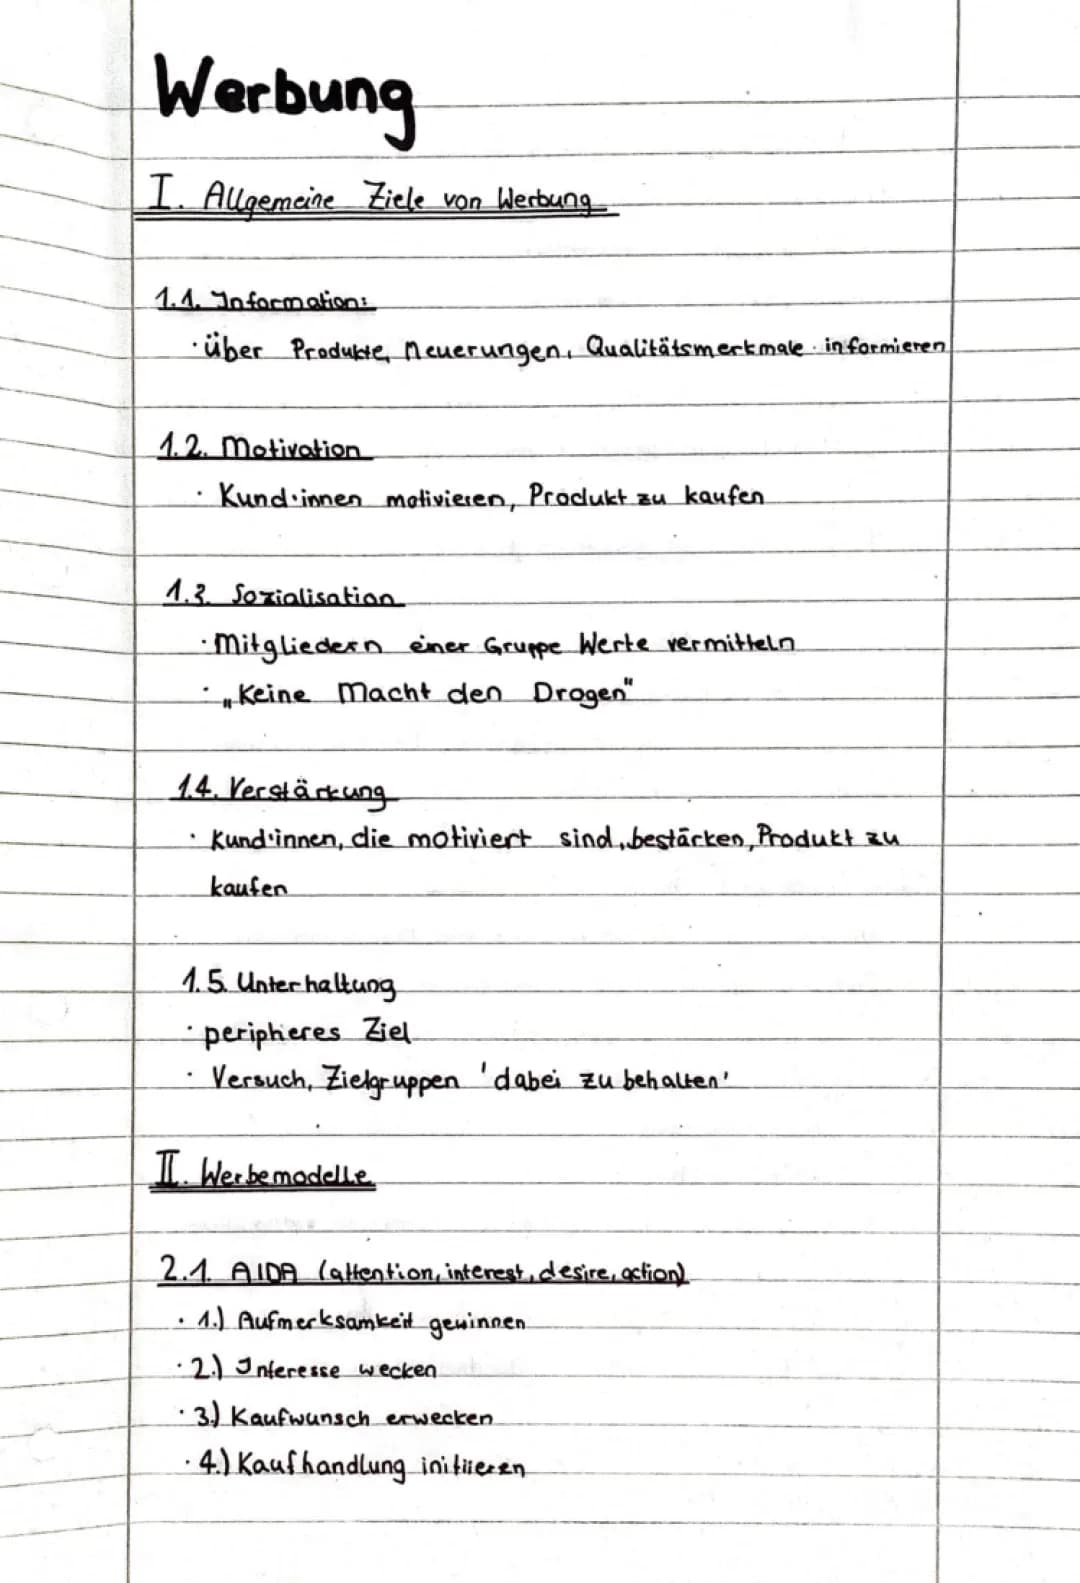 Werbung
I. Allgemeine Ziele von Werbung
1.1. Information:
· über Produkte, Neuerungen, Qualitätsmerkmale informieren
1.2. Motivation
· Kund·innen motivieren, Produkt zu kaufen
1.3. Sozialisation
· Mitgliedern einer Gruppe Werte vermitteln
· „Keine Macht den Drogen"
1.4. Verstärkung
· Kund·innen, die motiviert sind, bestärken, Produkt zu
kaufen
1.5. Unterhaltung
· peripheres Ziel
· Versuch, Zielgruppen 'dabei zu behalten'
II. Werbemodelle
2.1. AIDA (attention, interest, desire, action)
· 1.) Aufmerksamkeit gewinnen
· 2.) Interesse wecken
· 3.) Kaufwunsch erwecken
· 4.) Kaufhandlung initiieren